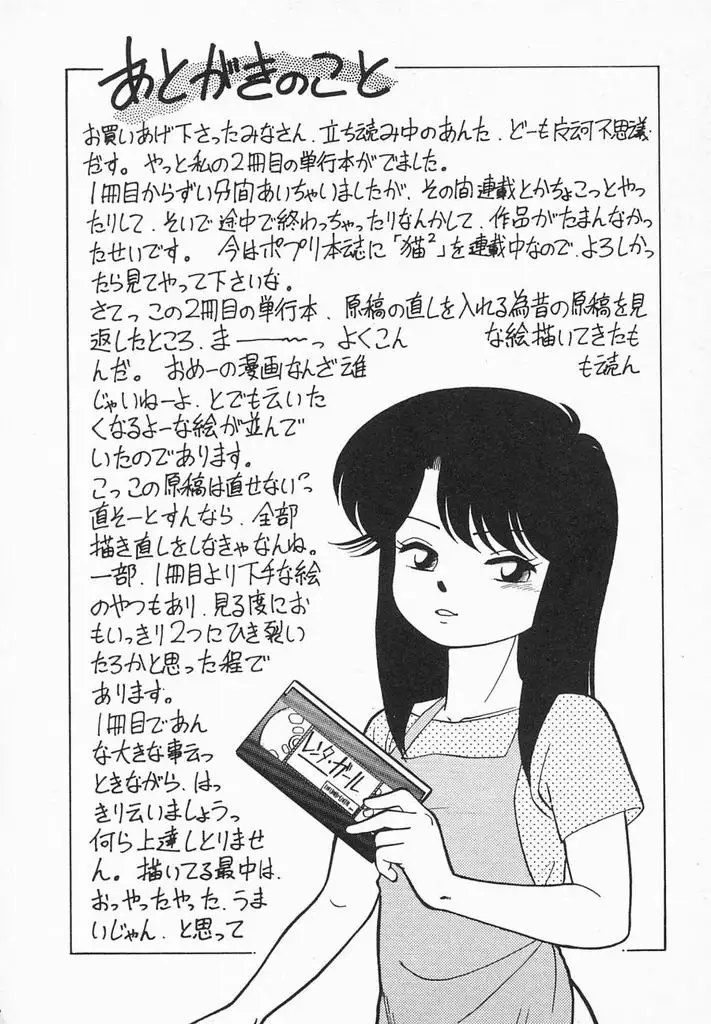 あとがきのこと
お買いあげ下さったみなさん、立ち読み中のあんた、どーも 不思議
だす。やっと私の2冊目の単行本がでました。
1冊目からずい分間あいちゃいましたが、その間連載とかちょこっとやっ
たりして、そいで途中で終わっちゃったりなんかして、作品がたまんなかっ
たせいです。 今はポプリ本誌に「猫²」を連載中なので、よろしかっ
たら見てやって下さいな。
さてっこの2冊目の単行本、原稿の直しを入れる為昔の原稿を見
返したところ、ま━━━〜っ よくこん な絵描いてきたも
んだ。 おめーの漫画なんざ誰 も読ん
じゃいねーよ、とでも云いた
くなるよーな絵が並んで
いたのであります。
こっこの原稿は直せない〜っ
直そーとすんなら、全部
描き直しをしなきゃなんね。
一部、1冊目より下手な絵
のやつもあり、見る度にお
もいっきり2つにひき裂い
たろかと思った程で
あります。
1冊目であん
な大きな事云っ
ときながら、はっ
きり云いましょうっ
何ら上達しとりませ
ん。描いてる最中は、
おっやったやった、うま
いじゃん、と思って
レンタ・ガール